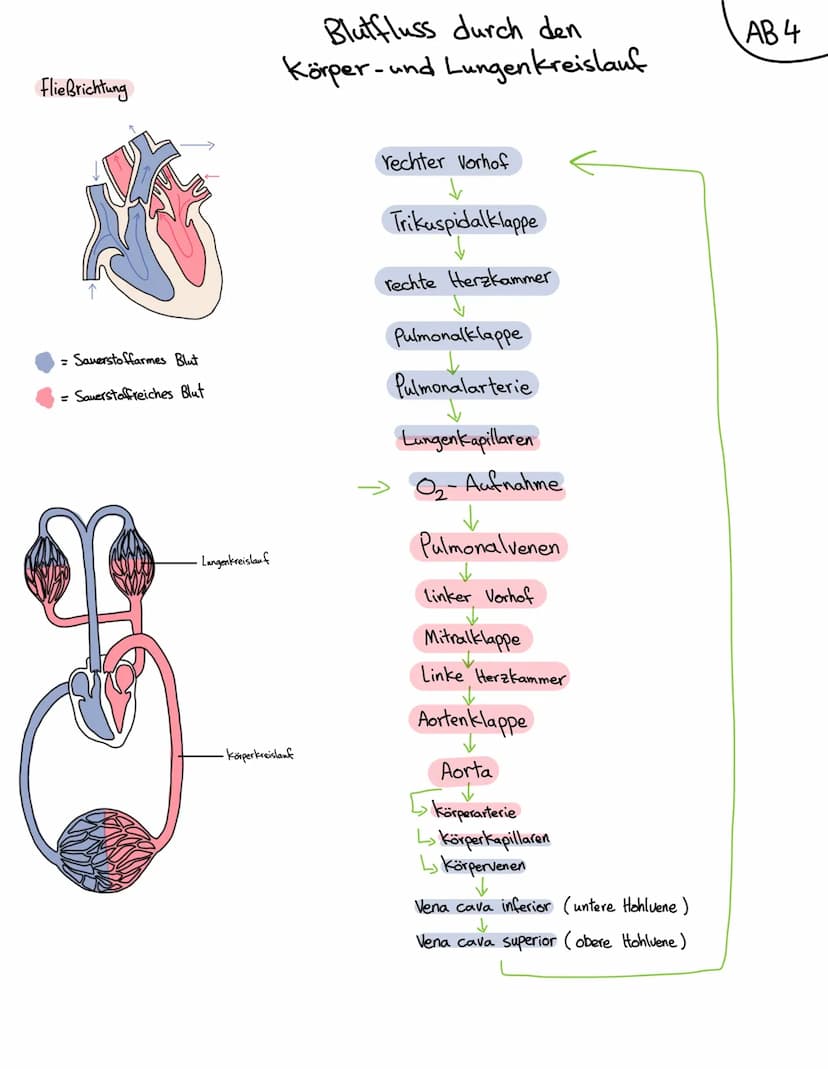 Blutfluss durch den
Körper- und Lungenkreislauf
AB 4
Fließrichtung
= Sauerstoffarmes Blut
= Sauerstoffreiches Blut
rechter Vorhof
Trikuspidalklappe
rechte Herzkammer
Pulmonalklappe
Pulmonalarterie
Lungenkapillaren
O₂ - Aufnahme
Pulmonalvenen
linker Vorhof
Mitralklappe
Linke Herzkammer
Aortenklappe
Aorta
Körperarterie
Körperkapillaren
Körpervenen
Vena cava inferior (untere Hohlvene)
Vena cava superior (obere Hohlvene)
Lungenkreislauf
Körperkreislauf